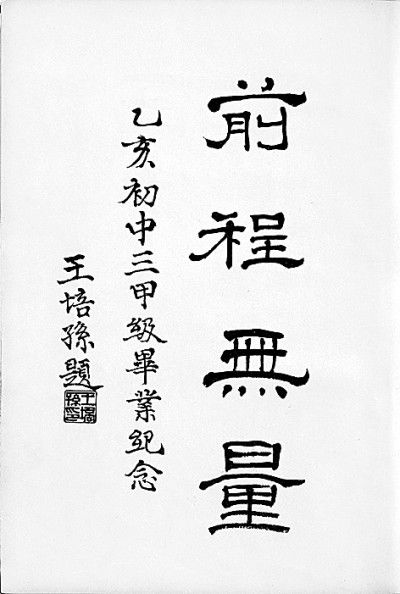 前程無量
乙亥初中三甲級畢業紀念
王培孫題
王培孫印